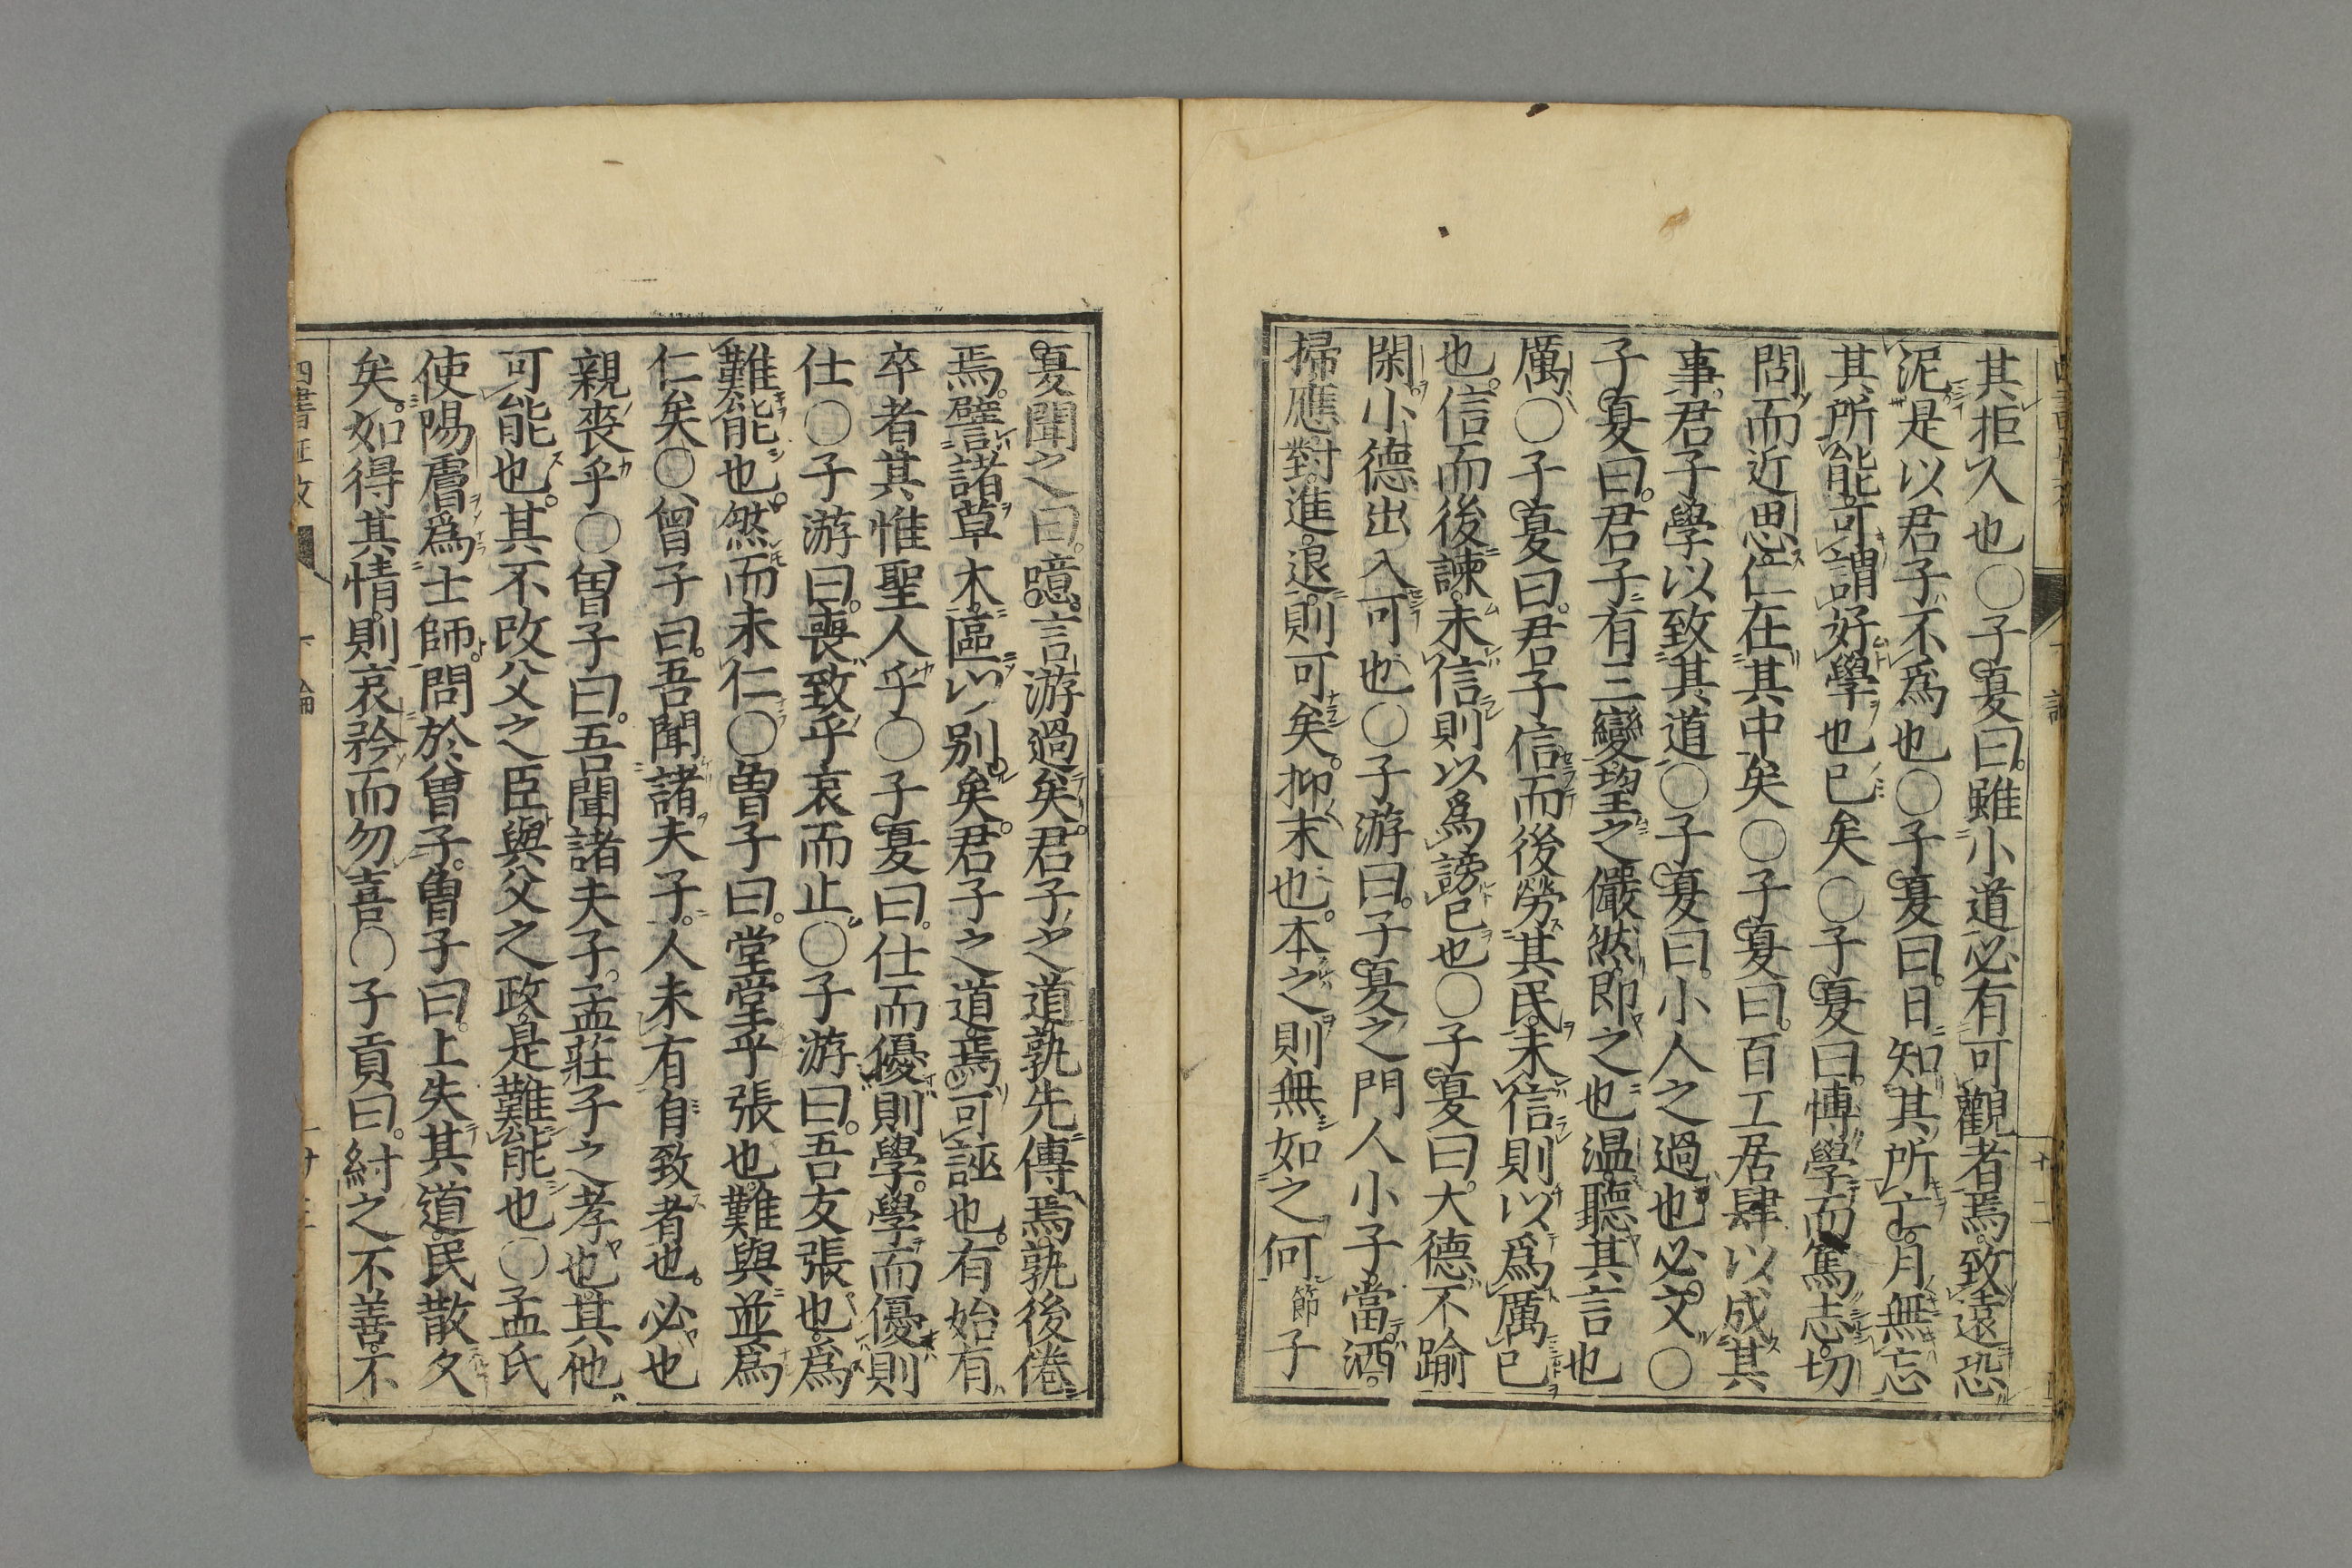 其拒人也〇子夏曰雖小道必有可觀者焉致遠恐
泥是以君子不爲也〇子夏曰日知其所亡月無忘
其所能可謂好學也已矣〇子夏曰博學而篤志切
問而近思仁在其中矣〇子夏曰百工居肆以成其
事君子學以致其道〇子夏曰小人之過也必文〇
子夏曰君子有三變望之儼然即之也温聽其言也
厲〇子夏曰君子信而後勞其民未信則以爲厲已
也信而後諫未信則以爲謗已也〇子夏曰大德不踰
閑小德出入可也〇子游曰子夏之門人小子當洒
掃應對進退則可矣抑末也本之則無如之何節子
夏聞之曰噫言游過矣君子之道孰先傳焉孰後倦
焉譬諸草木區以别矣君子之道焉可誣也有始有
卒者其惟聖人乎〇子夏曰仕而優則學學而優則
仕〇子游曰喪致乎哀而止〇子游曰吾友張也爲
難能也然而未仁〇曽子曰堂堂乎張也難與並爲
仁矣〇曽子曰吾聞諸夫子人未有自致者也必也
親喪乎〇曽子曰吾聞諸夫子孟莊子之孝也其他
可能也其不改父之臣與父之政是難能也〇孟氏
使陽膚爲士師問於曽子曽子曰上失其道民散久
矣如得其情則哀矜而勿喜〇子貢曰紂之不善不